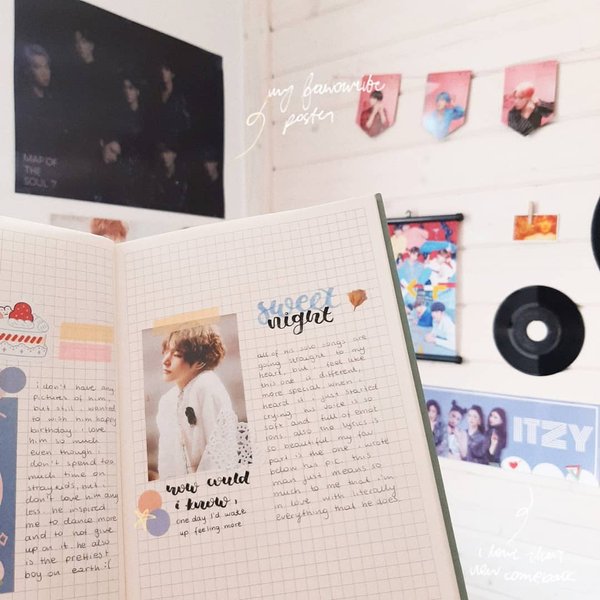 my favourite
poster
MAP OF
THE
SOUL 7
i don't have any
pictures of him,
but still i wanted
to wish him happy
birthday. i love
him so much
even though i
don't spend too
much time on
straykids, but i
don't love him any
less. he inspired
me to dance more
and to not give
up on it. he also
is the prettiest
boy on earth :(
sweet
night
all of his solo songs are
going straight to my
heart, but i feel like
this one is different,
more special. when i
heard it i just started
crying. his voice is so
soft and full of emot
ions. also the lyrics is
so beautiful. my fav
part is the one i wrote
below his pic. this
man just means so
much to me that i'm
in love with literally
everything that he does
now could
i know,
one day i'd wake
up feeling more
ITZY
i love their
new comeback